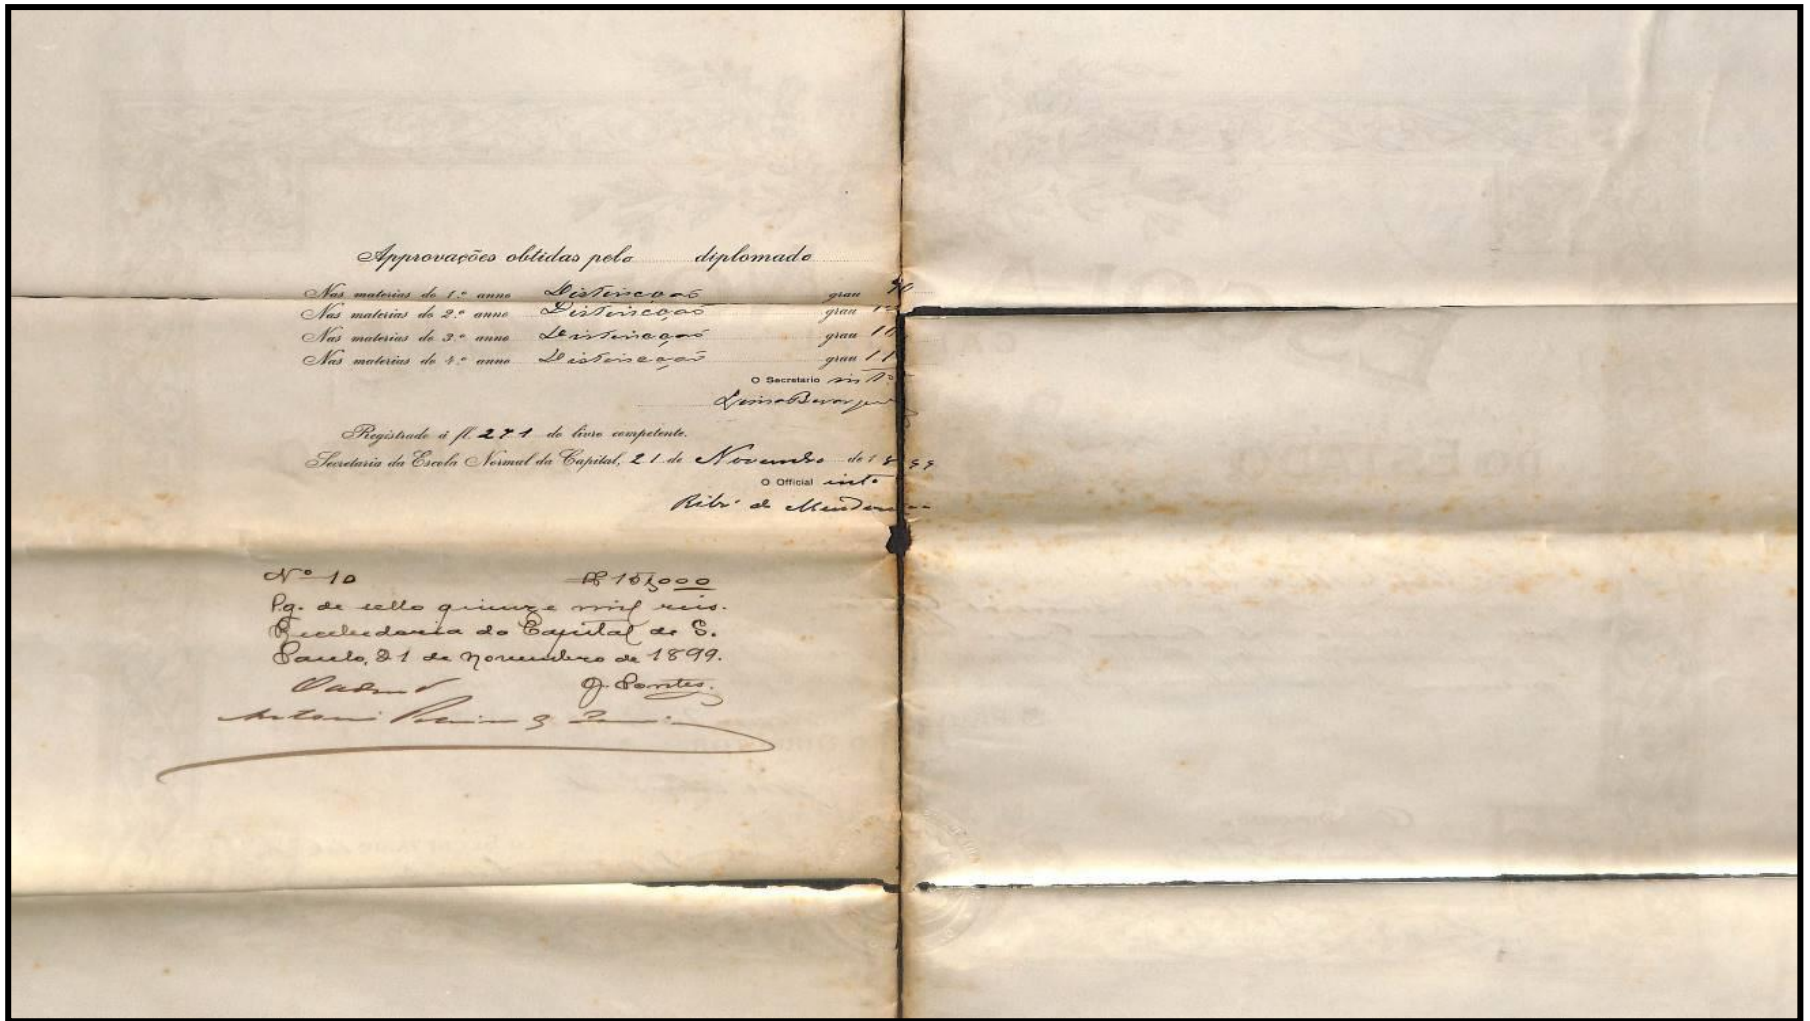 Approvações obtidas pelo diplomado
Nas materias do 1.º anno Distincçaõ grau 10
Nas materias do 2.º anno Distincçaõ grau
Nas materias do 3.º anno Distincçaõ grau 10
Nas materias do 4.º anno Distincçaõ grau
O Secretario intº
Registrado á fl. 271 do livro competente.
Secretaria da Escola Normal da Capital, 21 de Novembro de 1899
O Official intº
Ribº de
Nº 10 R 15$000
Pg. de sello quinze mil reis.
Recebedoria da Capital de S.
Paulo, 21 de Novembro de 1899.
J. Pontes.